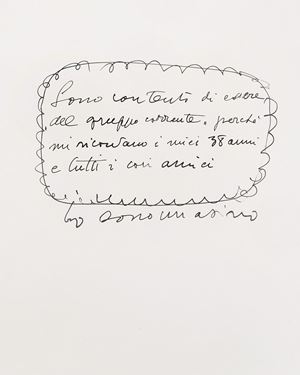 Sono contento di essere
del gruppo corrente, perché
mi ricordano i miei 38 anni
e tutti i cari amici
io sono un asino